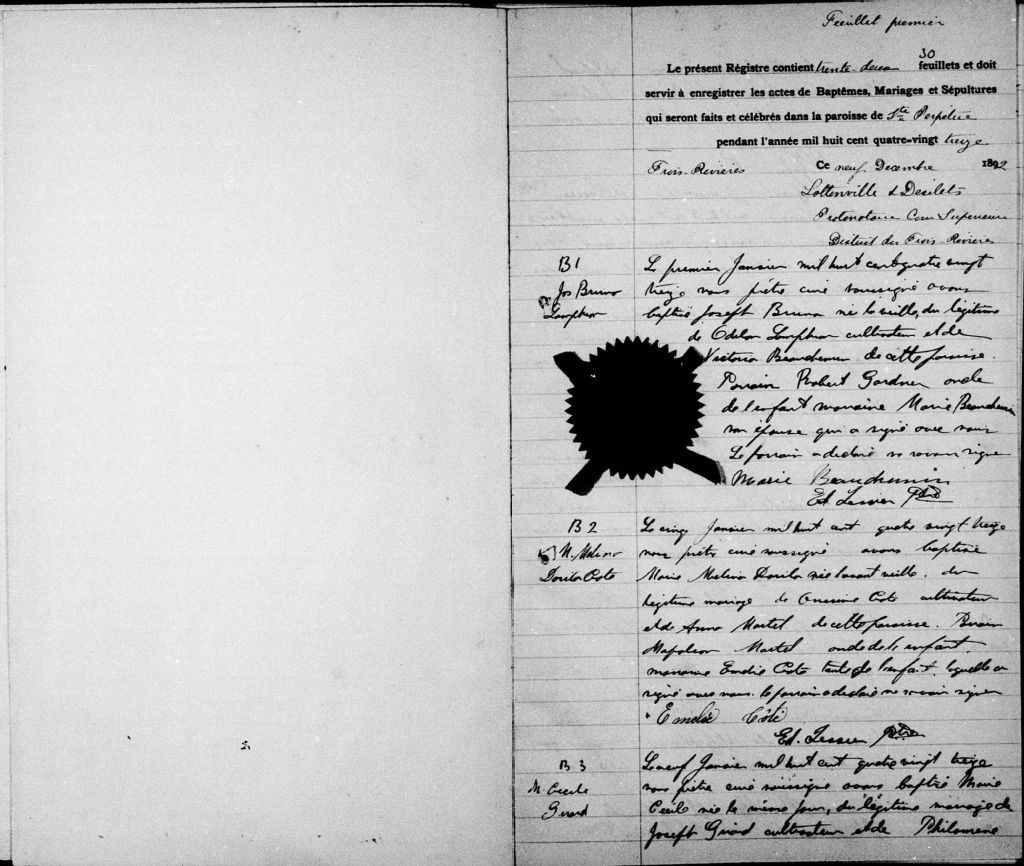 Feuillet premier
30
Le présent Régistre contient trente-deux feuillets et doit
servir à enregistrer les actes de Baptêmes, Mariages et Sépultures
qui seront faits et célébrés dans la paroisse de Ste Perpétue
pendant l'année mil huit cent quatre-vingt treize
Trois-Rivières Ce neuf Decembre 1892
Lottinville & Desilets
Protonotaire Cour Superieure
District des Trois-Rivières
B 1
Jos Bruno
Le premier Janvier mil huit cent quatre vingt
treize nous prêtre curé soussigné avons
baptisé Joseph Bruno né la veille, du légitime
de Odelon cultivateur et de
Victoria Beauchemin de cette paroisse.
Parrain Robert Gardner oncle
de l'enfant marraine Marie Beauchemin
son épouse qui a signé avec nous
Le parrain a declaré ne savoir signer
Marie Beauchemin
Et. Tessier Ptre
B 2
M. Melina
Dorila Coté
Le cinq Janvier mil huit cent quatre vingt treize
nous prêtre curé soussigné avons baptisé
Marie Melina Dorila née l'avant veille, du
légitime mariage de Onesime Coté cultivateur
et de Anna Martel de cette paroisse. Parrain
Napoleon Martel oncle de l'enfant.
marraine Emelie Coté tante de l'enfant. laquelle a
signé avec nous. le parrain a declaré ne savoir signer
Emelie Côté
Et. Tessier Ptre
B 3
M. Cecile
Girard
Le neuf Janvier mil huit cent quatre vingt treize
nous prêtre curé soussigné avons baptisé Marie
Cecile née le même jour, du légitime mariage de
Joseph Girard cultivateur et de Philomene